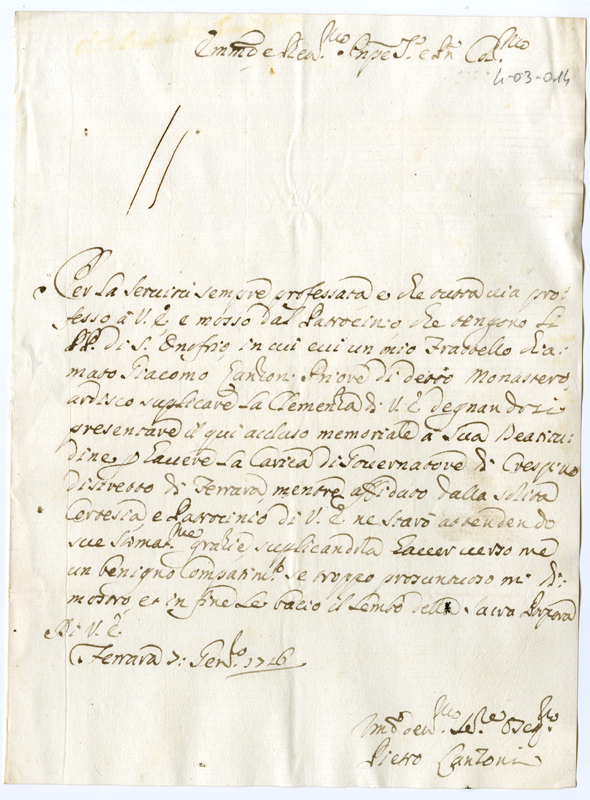 Emmo e Reu.mo Pnpe Sre e Pn Col.mo
4-03-014
Per la seruitù sempre professata e che tuttavia pro=
fesso à V. E. e mosso dal Patrocinio che tengono li
PP. di S. Onofrio in cui eui un mio Fratello chia=
mato Giacomo Canzoni Priore di detto Monastero,
ardisco suplicare la Clemenza di V. E. degnandosi
presentare il qui accluso memoriale a Sua Beatitu=
dine p hauere la Carica di Gouernatore di Crespino
distretto di Ferrara mentre affidato dalla solita
Cortesia e Patrocinio di V. E. ne starò attendendo
sue stimat.me grazie suplicandola hauer uerso me
un benigno Compatim.to se troppo prosuntuoso mi di=
mostro et in fine le bacio il lembo della Sacra Porpora
Di V. E.
Ferrara 7: Gen.o 1726
Vm.o deu.mo Se.re Oseq.mo
Pietro Canzoni